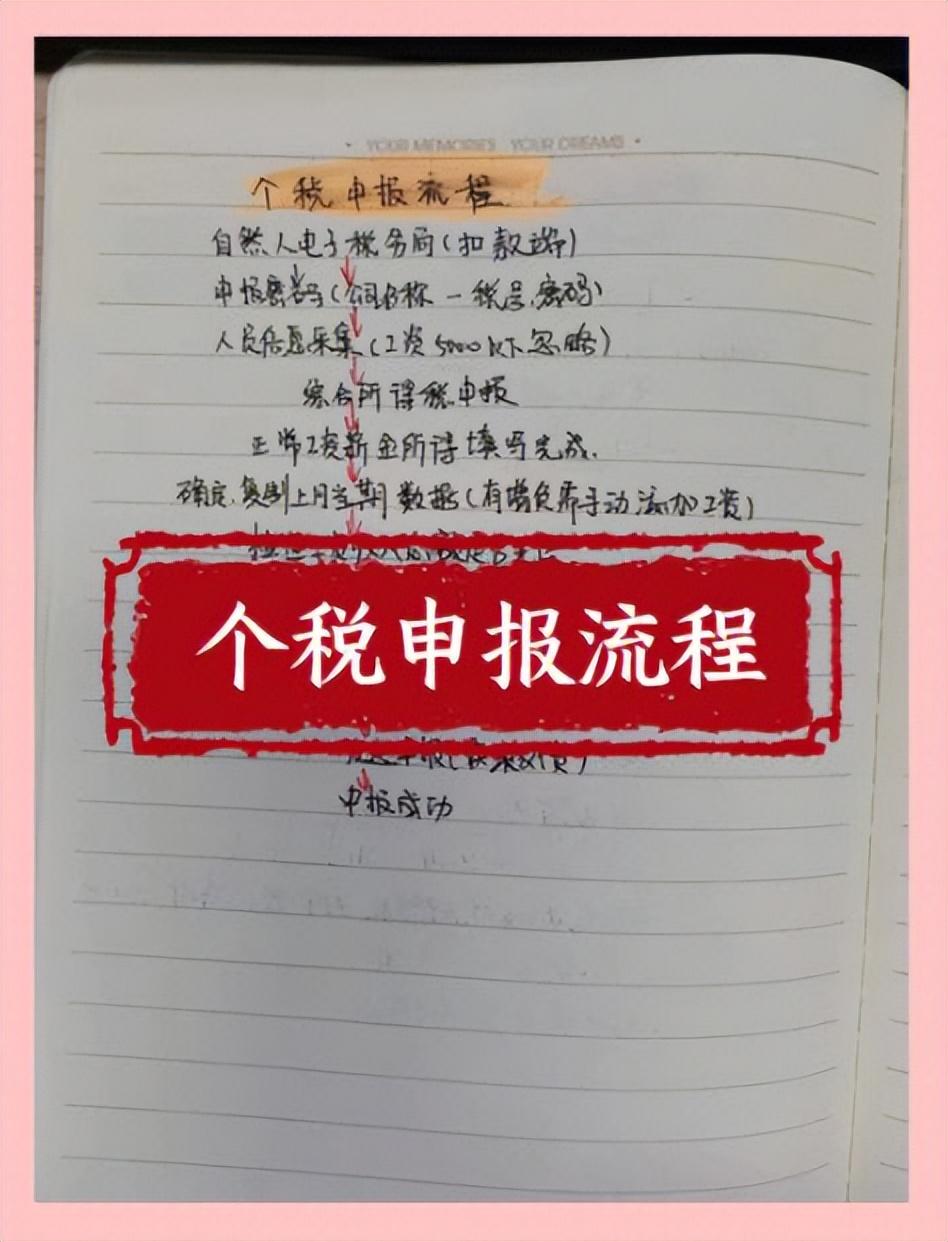 YOUR MEMORIES YOUR DREAMS
个税申报流程
自然人电子税务局(扣款端)
申报密码(公司名称一税号、密码)
人员信息采集(工资5000以下忽略)
综合所得税申报
正常工资薪金所得填写完成.
确定.复制上月当期数据(有增负需手动添加工资)
个税申报流程
申报成功